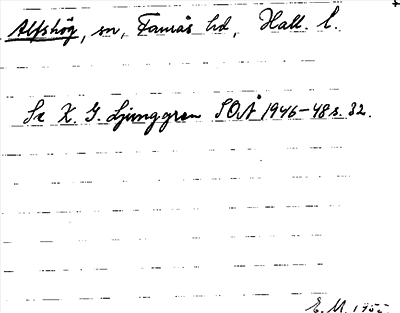 Alfshög, sn, Faurås hd, Hall. l.
Se K. G. Ljunggren SOÅ 1946-48 s. 32.
E. M. 1955